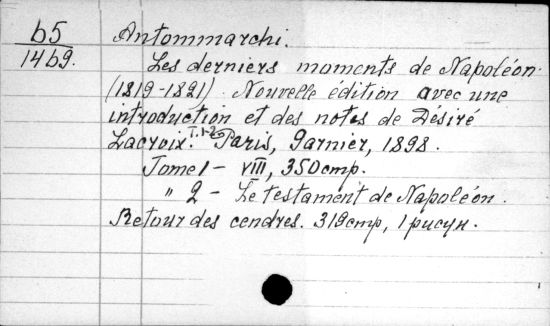 б5
1469.
Antommarchi.
Les derniers moments de Napoléon
(1819-1821) Nouvelle édition avec une
introduction et des notes de Désiré
Lacroix. T.1-2 Paris, Garnier, 1898.
Tome 1 - VIII, 350 стр.
" 2 - Le testament de Napoléon.
Retour des cendres. 319 стр, 1 рисун.